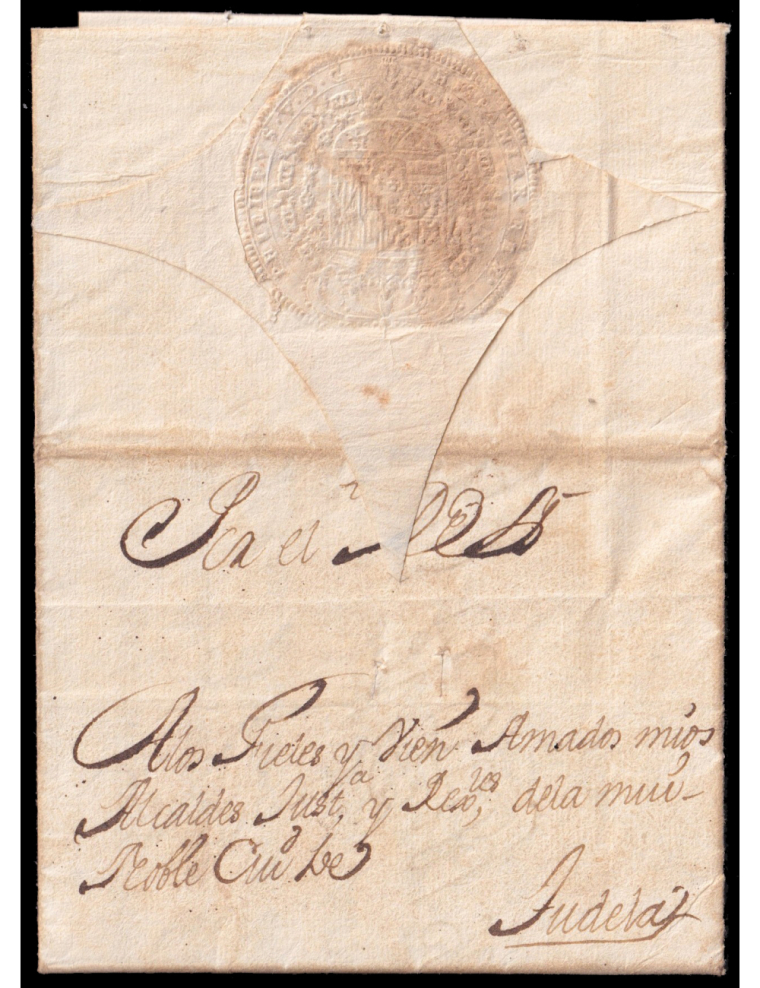 PHILIPPVS V D G HISPANIAR REX
Por el Rey
A los Fieles y Vien Amados mios
Alcaldes Just.ª y Rex.res dela mui
Noble Ciu.d de
Tudela